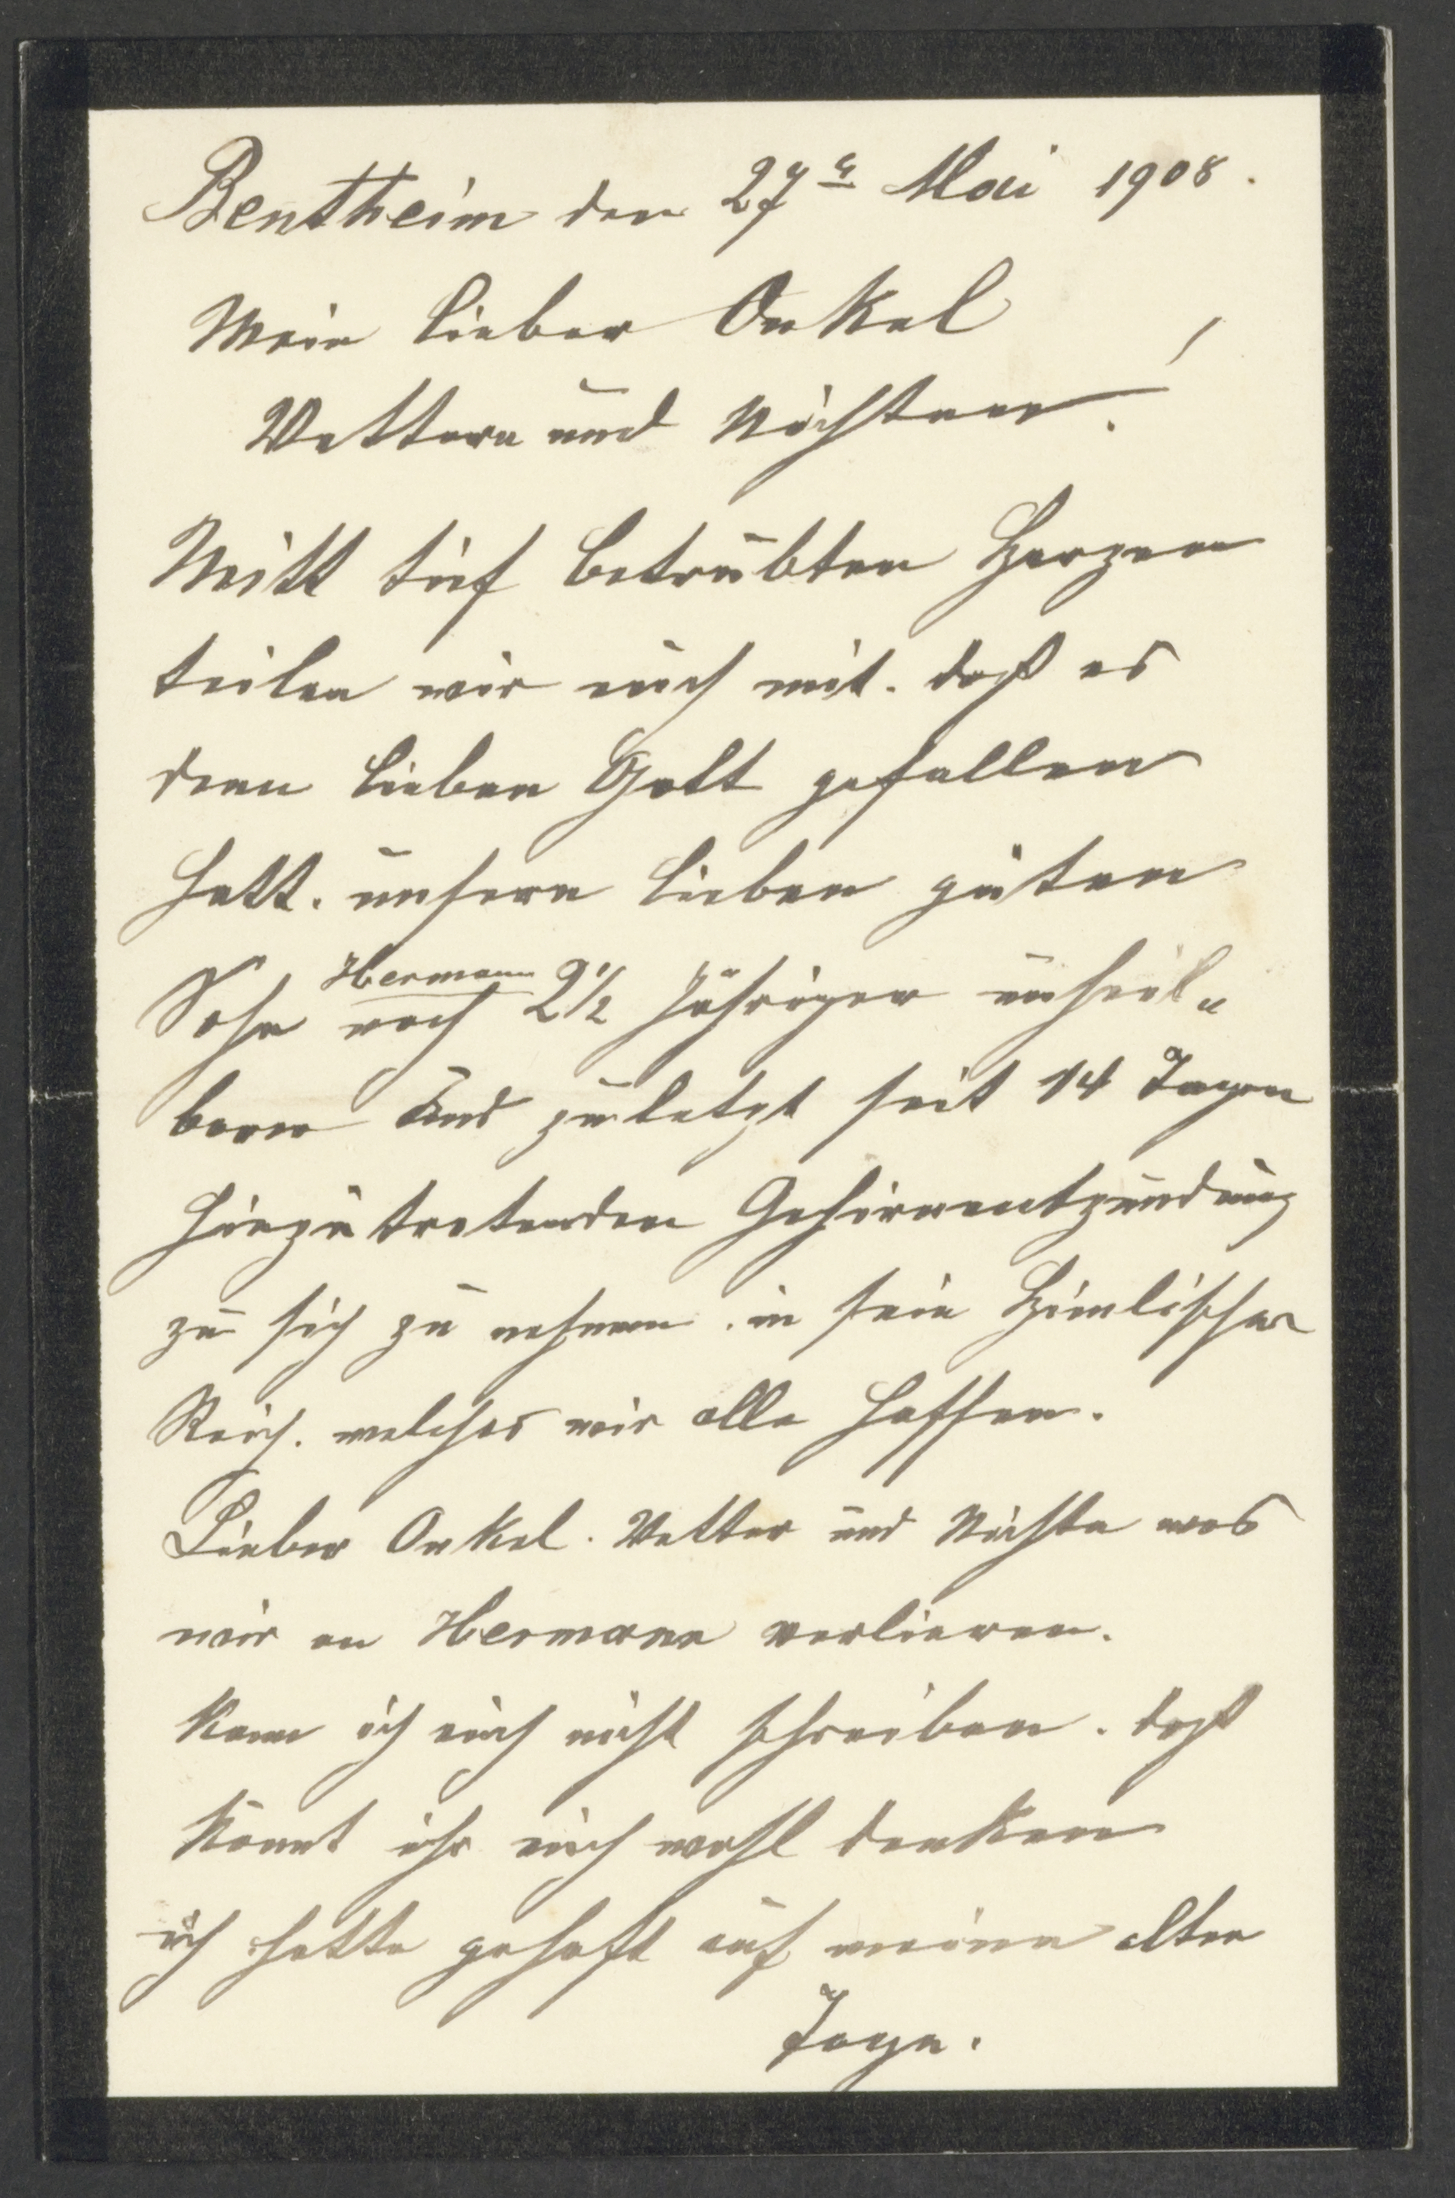 Bentheim den 27t Mai 1908.
Mein lieber Onkel
Vettern und Nichten!
Mitt tief betrübten Herzen
teilen wir euch mit. daß es
denn lieben Gott gefallen
hatt. unsern lieben guten
Sohn Hermann nach 2 1/2 Jähriger unheil„
barer und zuletzt seit 14 Tagen
hinzutretenden Gehirnentzündung
zu sich zu nehmen. in sein Himlischer
Reich. welches wir alle hoffen.
Lieber Onkel. Vetter und Nichte was
wir an Hermann verlieren.
kann ich euch nicht schreiben. daß
könnt ihr euch wohl denken
ich hatte gehoft auf meine alten
Tage.